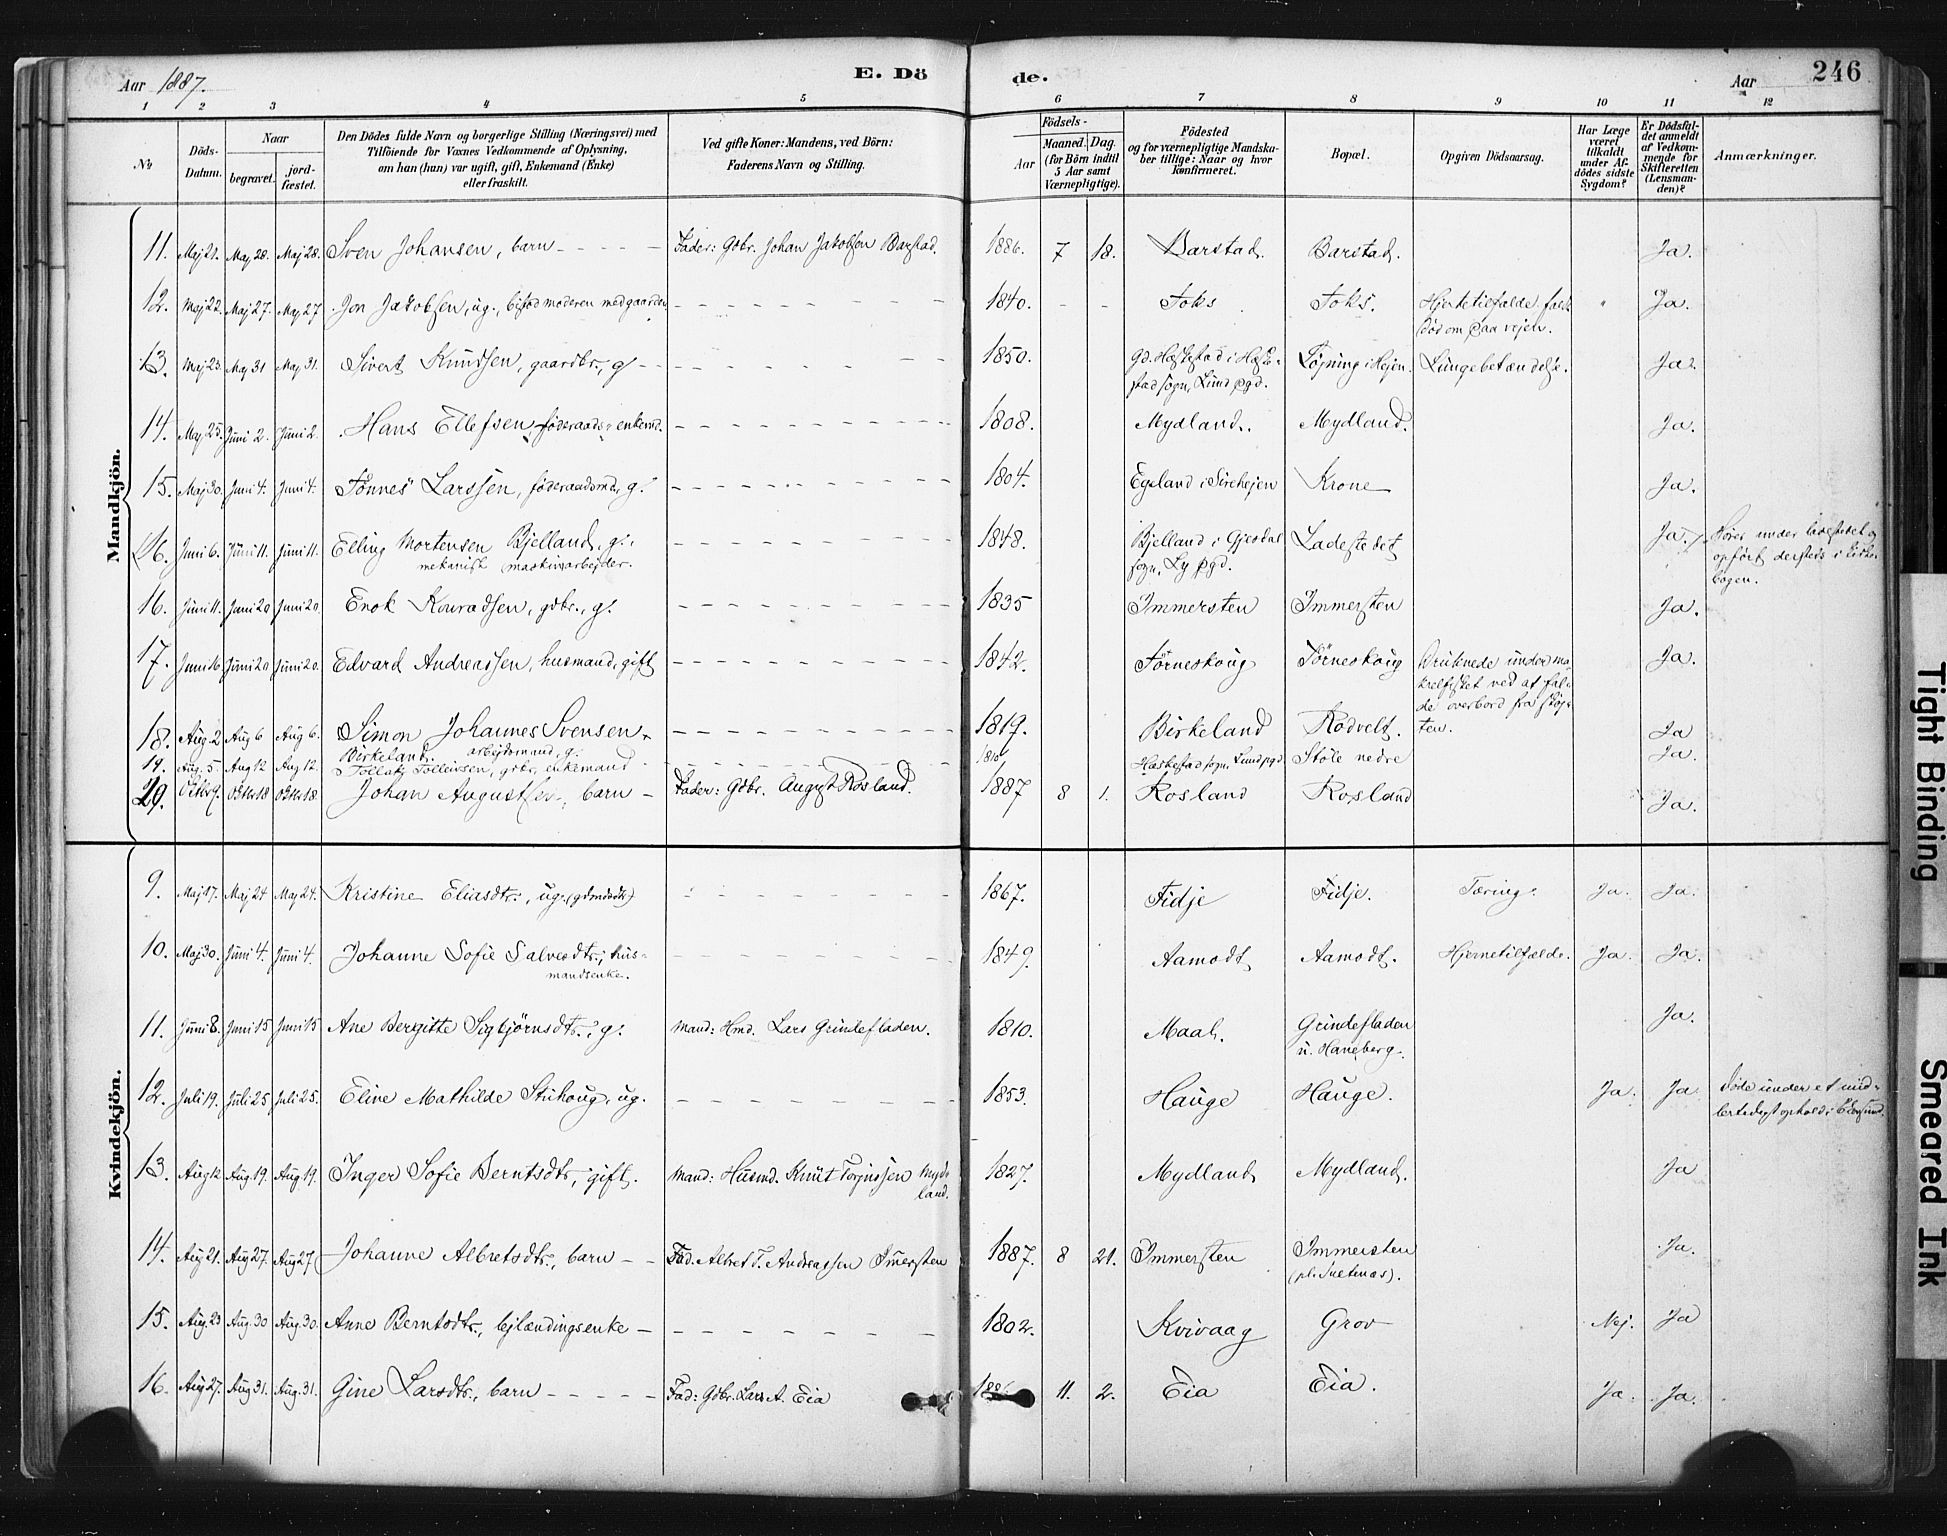 Aar 1887. E. Dö de. Aar 246
1 2 3 4 5 6 7 8 9 10 11 12
No
Döds-Datum.
Naar
begravet.
jord-fæstet.
Den Dödes fulde Navn og borgerlige Stilling (Næringsvei) med
Tilföiende for Voxnes Vedkommende af Oplysning,
om han (hun) var ugift, gift, Enkemand (Enke)
eller fraskilt.
Ved gifte Koner: Mandens, ved Börn:
Faderens Navn og Stilling.
Födsels-
Aar
Maaned. Dag.
(for Börn indtil
5 Aar samt
Værnepligtige).
Födested
og for værnepligtige Mandska-
ber tillige: Naar og hvor
konfirmeret.
Bopæl.
Opgiven Dödsaarsag.
Har Læge
været
tilkaldt
under Af-
dödes sidste
Sygdom?
Er Dödsfal-
det anmeldt
af Vedkom-
mende for
Skifteretten
(Lensman-
den)?
Anmærkninger.
Mandkjön.
11. Maj 21. Maj 28. Maj 28. Sven Johansen, barn Fader: Gdbr. Johan Jakobsen Barstad. 1886. 7 18. Barstad. Barstad. Ja.
12. Maj 22. Maj 27. Maj 27 Jon Jakobsen, ug., bistod moderen med gaarden 1840. Foks Foks. Hjertetilfælde, faldt Ja.
død om paa vejen.
13. Maj 23. Maj 31 Maj 31. Sivert Knudsen, gaardbr., g 1850. Gd. Hæskestad i Hæske- Løjning i Hejen. Lungebetændelse. Ja.
stad sogn, Lund pgd.
14. Maj 25. Juni 2. Juni 2. Hans Ellefsen, føderaads- enkemd. 1808. Mydland. Mydland. Ja.
15. Maj 30. Juni 4. Juni 4. Tønnes Larssen, føderaadsmd., g. 1804. Egeland i Sirehejen Krone Ja.
16. Juni 6. Juni 11. Juni 11. Elling Mortensen Bjelland, g. 1848. Bjelland i Gjesdal Ladestedet Ja. Hører under ladestedet og
mekanisk maskinarbejder. sogn, Ly pgd. opført dersteds i kirke-
bogen.
16. Juni 11. Juni 20 Juni 20. Enok Konradsen, gdbr., g. 1835 Immersten Immersten Ja.
17. Juni 16. Juni 20 Juni 20. Edvard Andreassen, husmand, gift 1842. Tørneskoug Tørneskoug Druknede under ma- Ja.
krelfisket ved at fal-
de overbord fra skøj-
ten.
18. Aug. 2 Aug 6 Aug 6. Simon Johannes Svensen 1819. Birkeland Rødvelt. Ja
Birkeland. arbejdsmand, g.
19. Aug. 5. Aug 12 Aug 12. Tollak Tolleivsen, gdbr., enkemand Hæskestad sogn, Lund pgd. Støle nedre Ja.
20. Oktbr 9. Oktbr 18 Oktbr 18. Johan Augustsen, barn Fader: Gdbr. August Rosland. 1887 8 1. Rosland Rosland Ja.
Kvindekjön.
9. Maj 17. Maj 24 Maj 24. Kristine Eliasdtr., ug. (gdmdsdtr) 1867. Fidje Fidje. Tæring. Ja. Ja.
10. Maj 30. Juni 4. Juni 4. Johanne Sofie Salvesdtr., hus- 1849. Aamodt Aamodt. Hjernetilfælde. Ja. Ja.
mandsenke.
11. Juni 8. Juni 15 Juni 15 Ane Bergitte Sigbjørnsdtr., g. Mand: Hmd. Lars Grindefladen. 1810. Maal. Grindefladen Ja.
u. Haneberg.
12. Juli 19. Juli 25 Juli 25. Eline Mathilde Stuhoug, ug. 1853. Hauge Hauge. Ja. Ja. Døde under et mid-
lertidigt ophold i Ekersund.
13. Aug 12 Aug. 19. Aug. 19. Inger Sofie Berntsdtr., gift. Mand: Husmd. Knut Torjussen Myd- 1827. Mydland Mydland. Ja
land.
14. Aug. 21. Aug 27. Aug 27 Johanne Albretsdtr., barn Fad. Albret T. Andreassen Imersten 1887. 8 21. Immersten Immersten Ja.
15. Aug. 23 Aug. 30 Aug. 30. Anne Berntsdtr., lejlændingsenke 1802. Kvivaag Grov Nej. Ja
16. Aug 27. Aug 31. Aug. 31. Gine Larsdtr., barn Fad: Gdbr. Lars A. Eia 1886 11. 2. Eia Eia. Ja. Ja.
Tight Binding
Smeared Ink